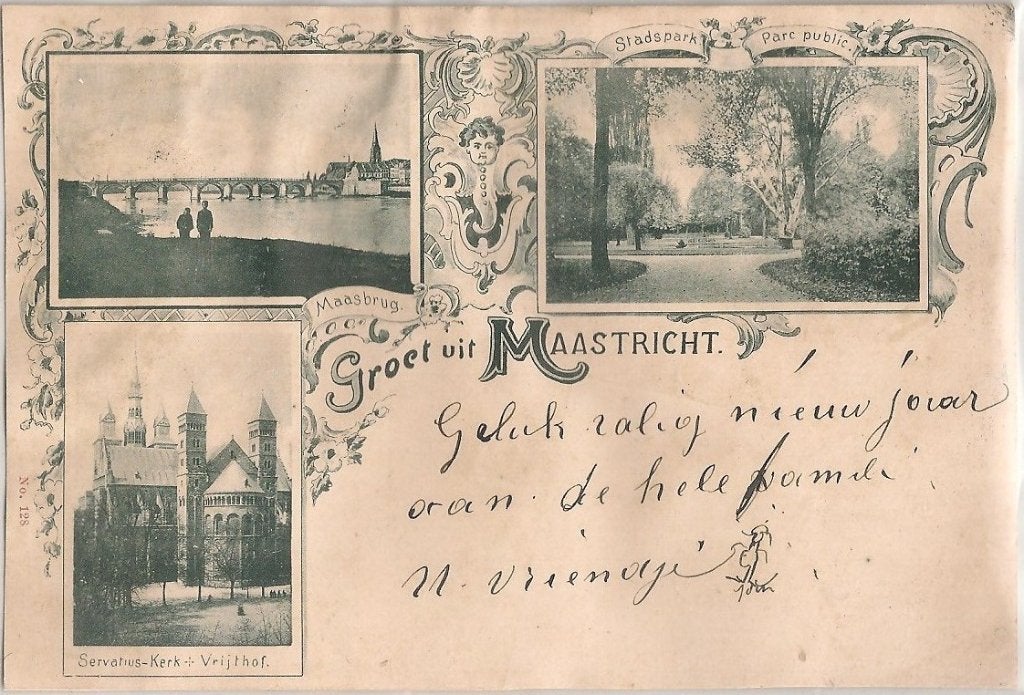 Stadspark Parc public.
Maasbrug.
Groet uit MAASTRICHT.
Geluk zalig nieuw jaar
aan de hele famili
U vriendje
No. 128
Servatius-Kerk Vrijthof.